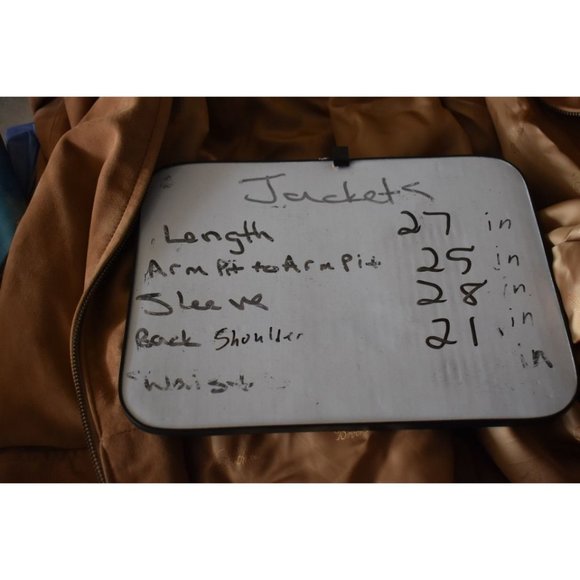 Jackets
Length 27 in
Arm Pit to Arm Pit 25 in
Sleeve 28 in
Back Shoulder 21 in
Waist in